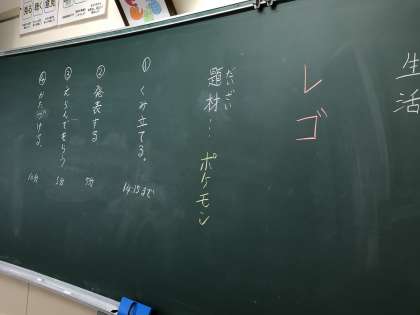 生活
レゴ
だいざい
題材…ポケモン
①くみ立てる。
14:15まで
②発表する
5分
③えらんでもらう
5分
④かたづける。
10分